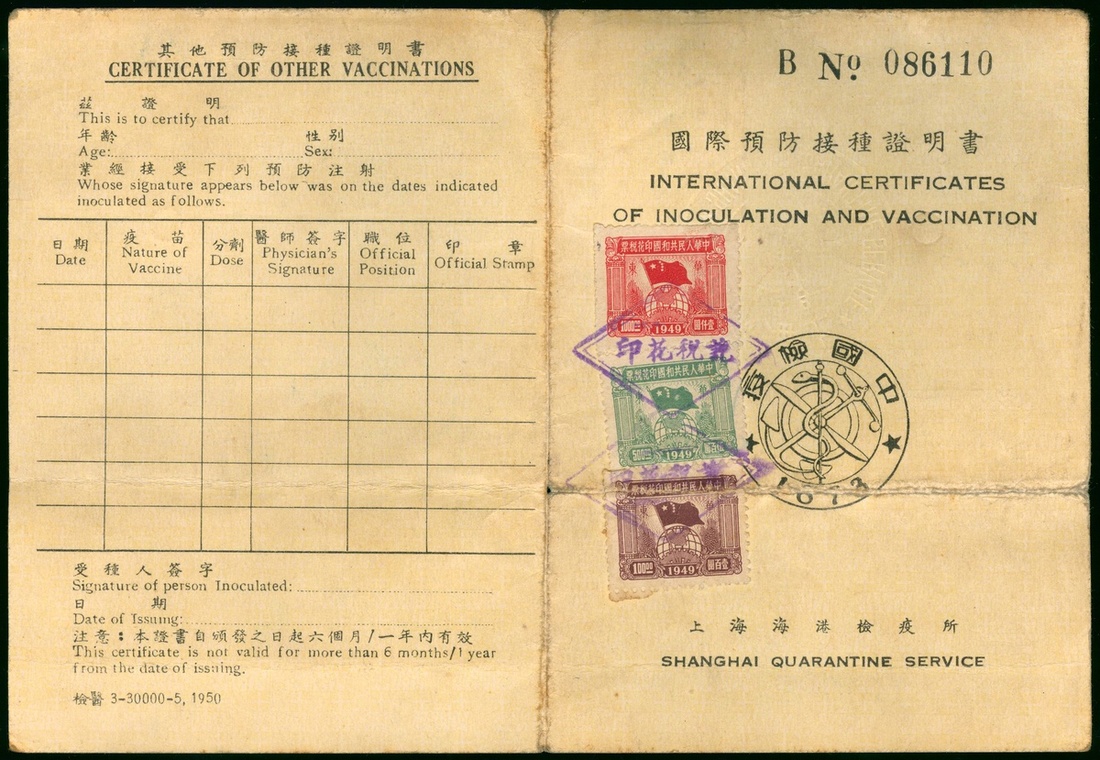 其他預防接種證明書
CERTIFICATE OF OTHER VACCINATIONS
茲證明
This is to certify that
年齡 性別
Age: Sex:
業經接受下列預防注射
Whose signature appears below was on the dates indicated
inoculated as follows.
日期 疫苗 分劑 醫師簽字 職位 印章
Date Nature of Vaccine Dose Physician's Signature Official Position Official Stamp
受種人簽字
Signature of person Inoculated:
日期
Date of Issuing:
注意：本證書自頒發之日起六個月/一年內有效
This certificate is not valid for more than 6 months/1 year
from the date of issuing.
檢醫 3-30000-5, 1950
B No 086110
國際預防接種證明書
INTERNATIONAL CERTIFICATES
OF INOCULATION AND VACCINATION
中華人民共和國印花稅票
華東
1000.00 1949 壹仟圓
印花稅訖
中華人民共和國印花稅票
華東
500.00 1949
中華人民共和國印花稅票
華東
100.00 1949 壹百圓
中國檢疫
1873
上海海港檢疫所
SHANGHAI QUARANTINE SERVICE